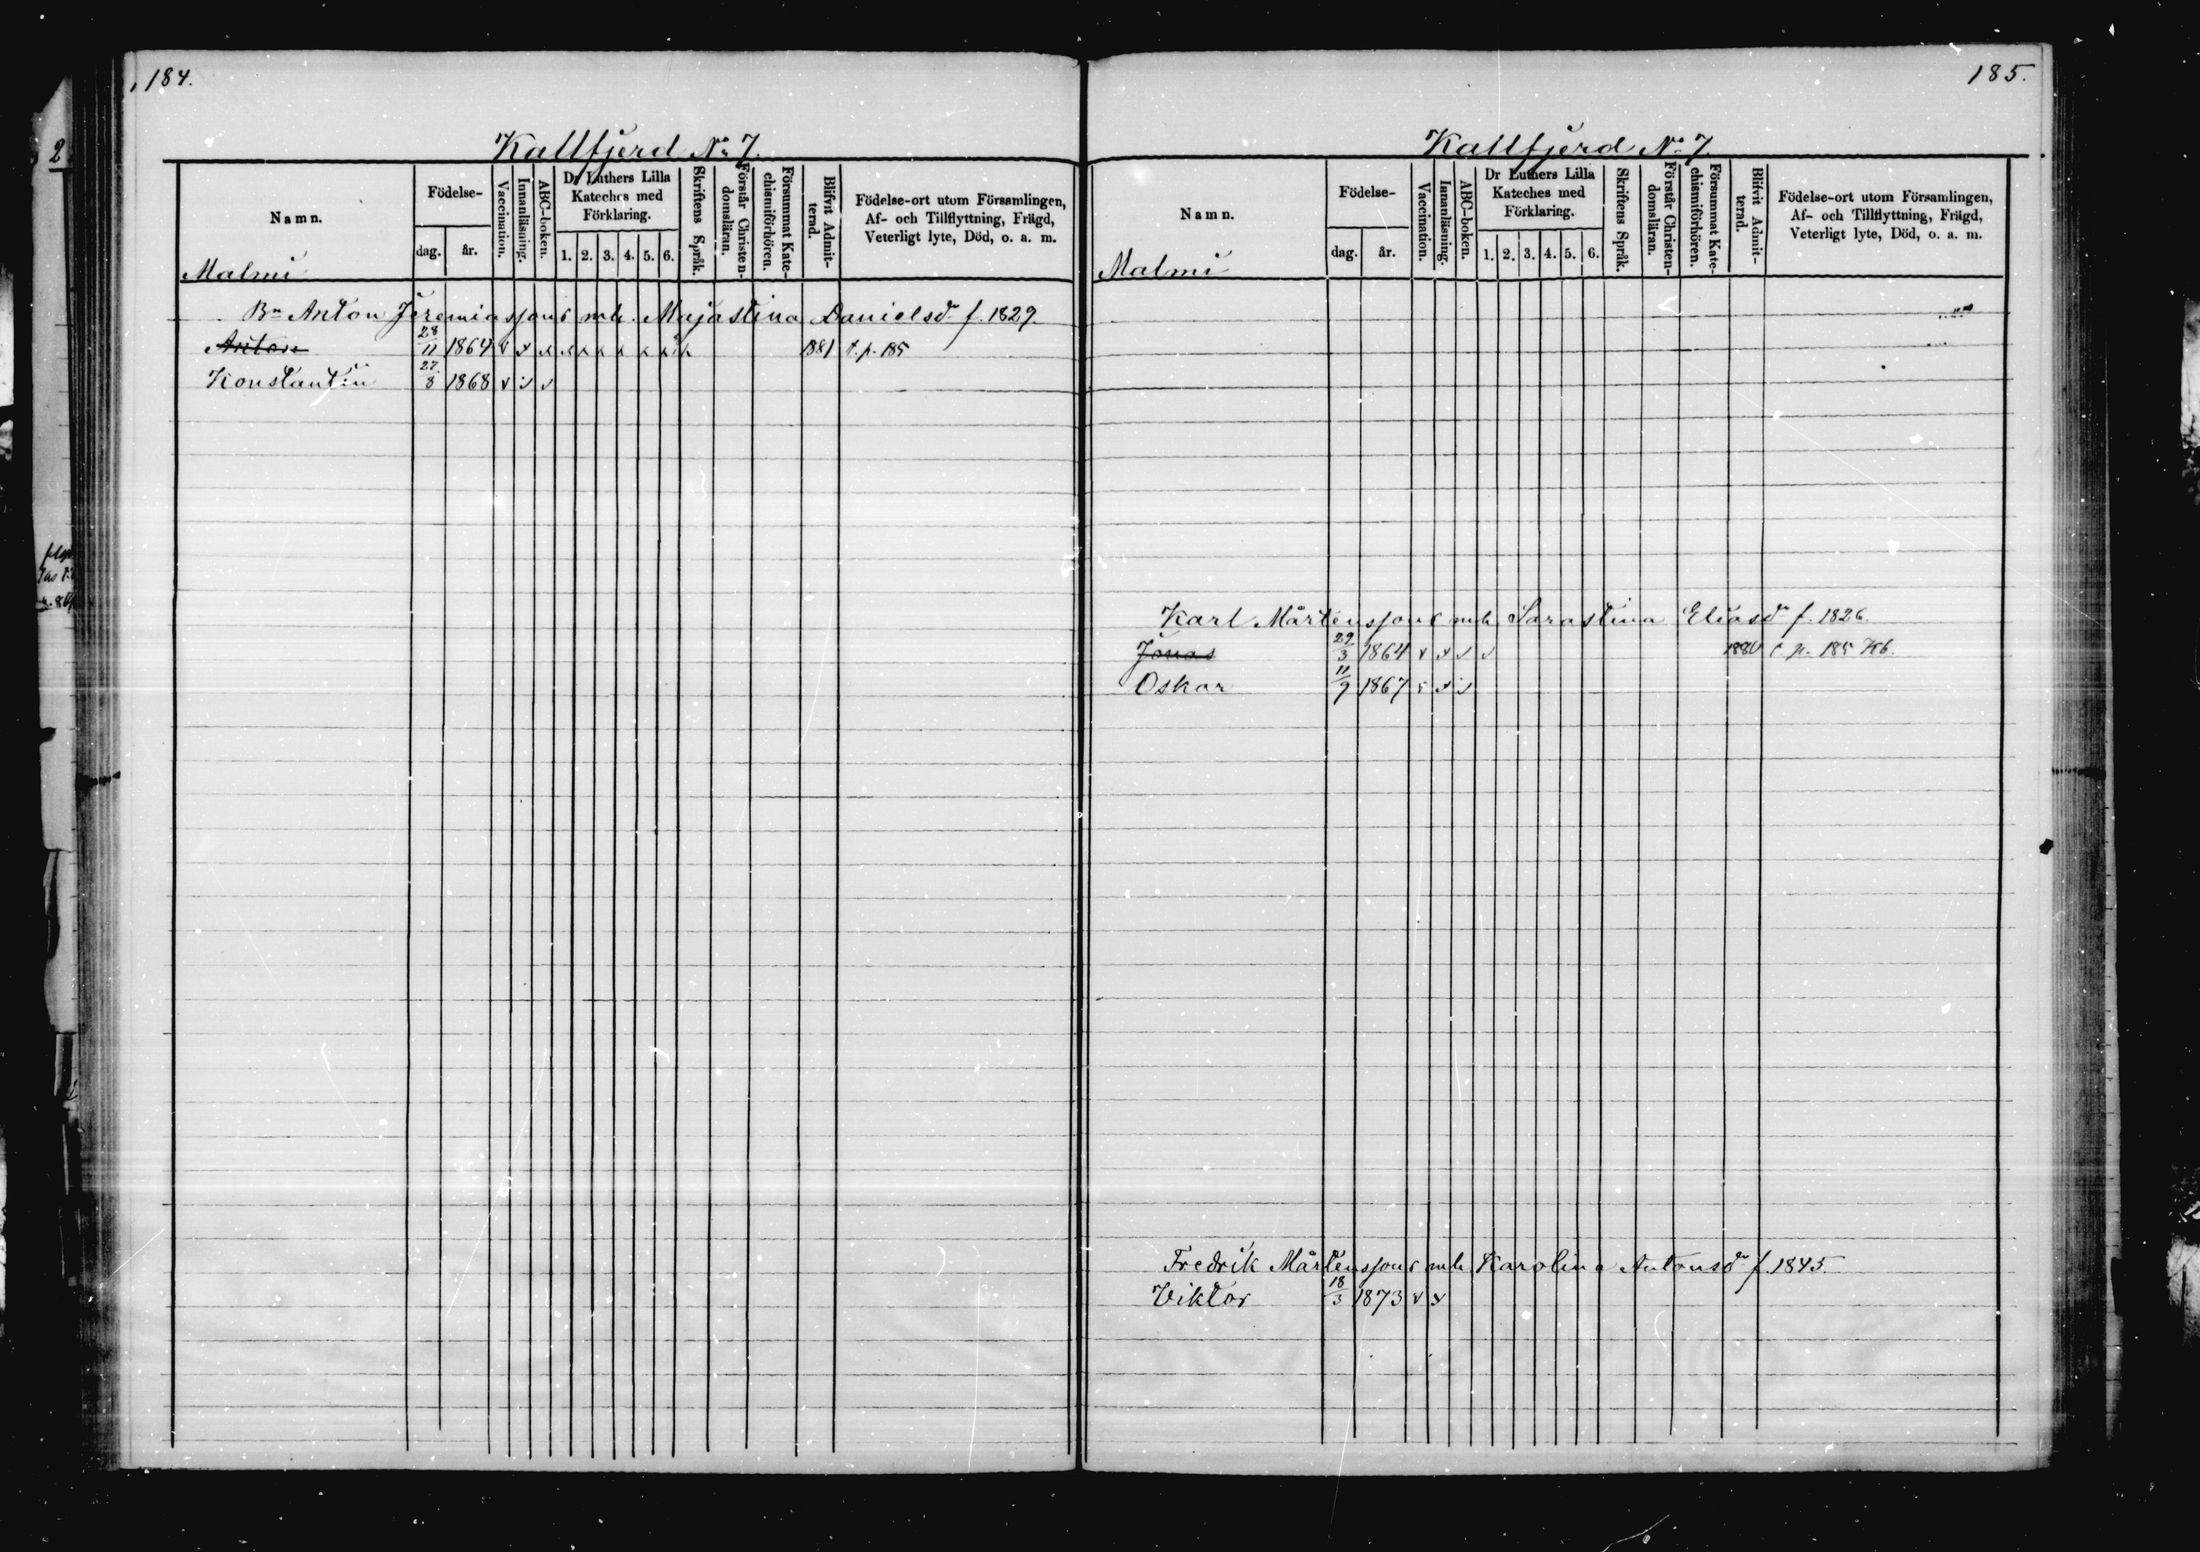 184.
Kallfjerd No 7.
Namn.
Födelse-
dag.
år.
Vaccination.
Innanläsning.
ABC-boken.
Dr Luthers Lilla
Kateches med
Förklaring.
1. 2. 3. 4. 5. 6.
Skriftens Språk.
Förstår Christen-
domsläran.
Försummat Kate-
chismiförhören.
Blifvit Admit-
terad.
Födelse-ort utom Församlingen,
Af- och Tillflyttning, Frägd,
Veterligt lyte, Död, o. a. m.
Malmi
Bn Anton Jeremiassons mh. Majastina Danielsdr f. 1829.
Anton 28/11 1864 1881 t. p. 185
Konstantin 27/8 1868
185.
Kallfjerd No 7
Namn.
Födelse-
dag.
år.
Vaccination.
Innanläsning.
ABC-boken.
Dr Luthers Lilla
Kateches med
Förklaring.
1. 2. 3. 4. 5. 6.
Skriftens Språk.
Förstår Christen-
domsläran.
Försummat Kate-
chismiförhören.
Blifvit Admit-
terad.
Födelse-ort utom Församlingen,
Af- och Tillflyttning, Frägd,
Veterligt lyte, Död, o. a. m.
Malmi
Karl Mårtenssons mh Sarastina Eliasdr f. 1826.
Jonas 29/3 1864 p. 185 Kb.
Oskar 11/9 1867
Fredrik Mårtenssons mh Karolina Antonsdr f. 1845.
Viktor 18/3 1873